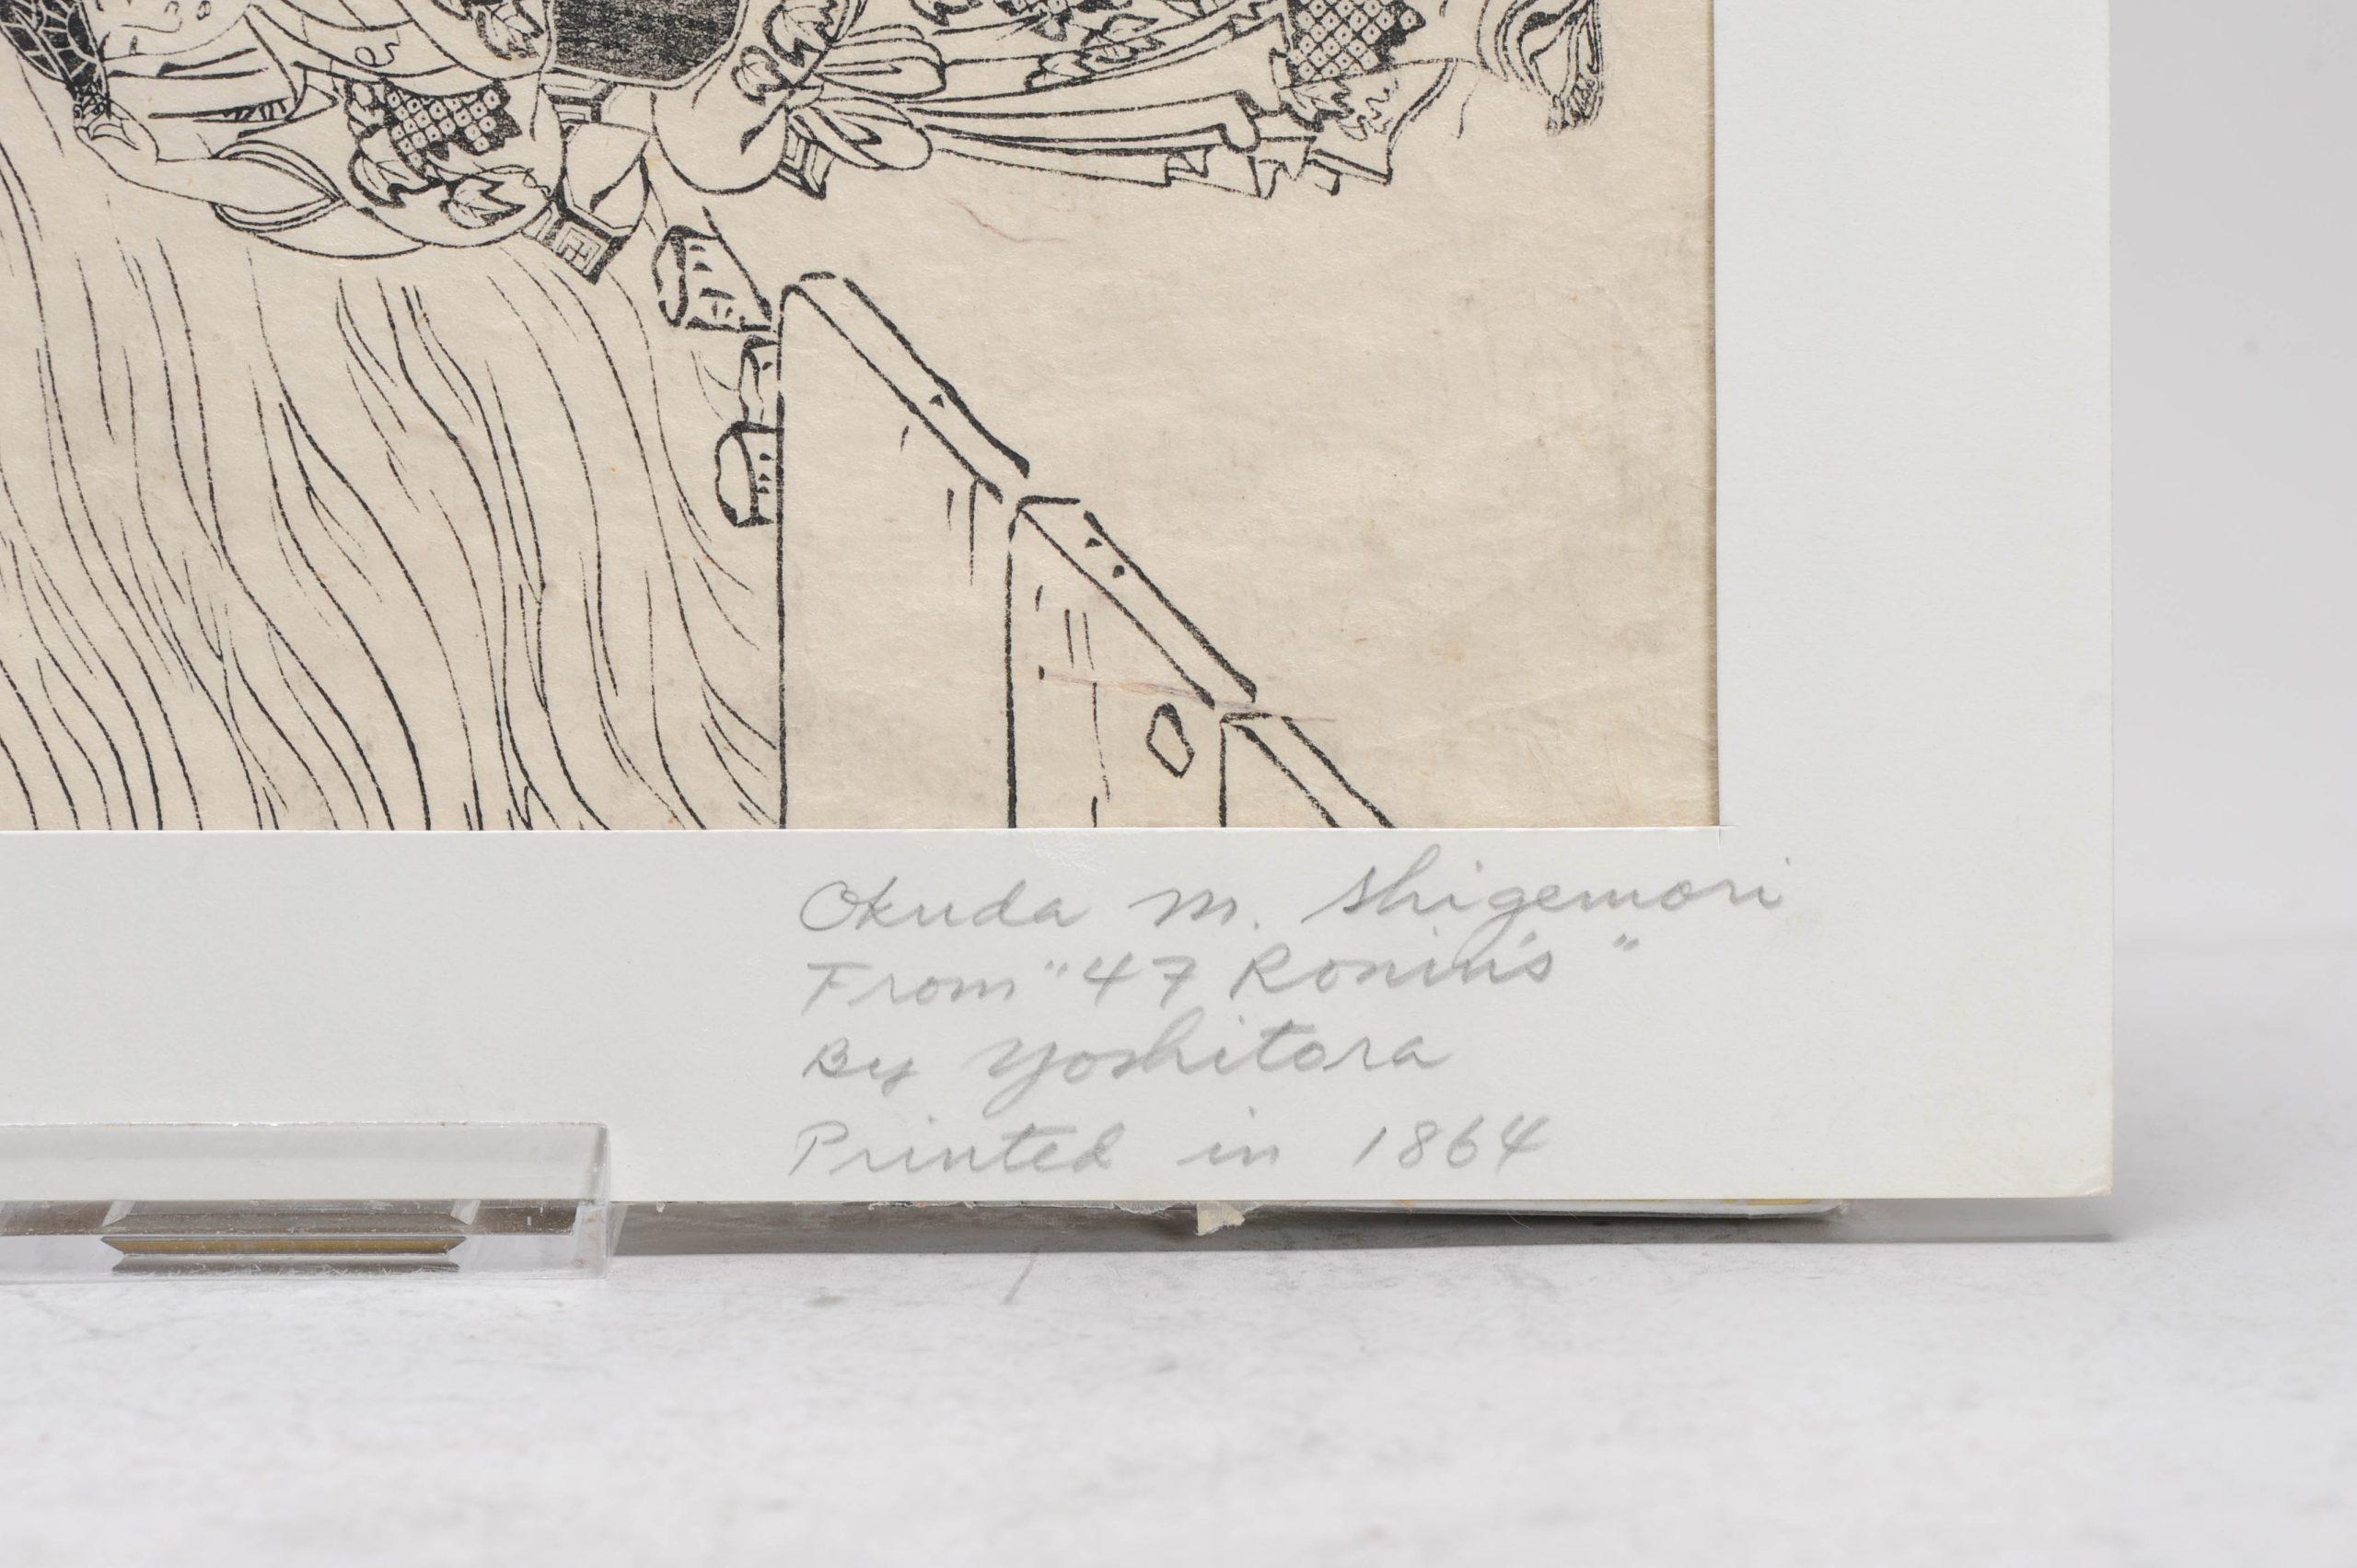 Okuda M. Shigemori
From "47 Ronin's"
By Yoshitora
Printed in 1864